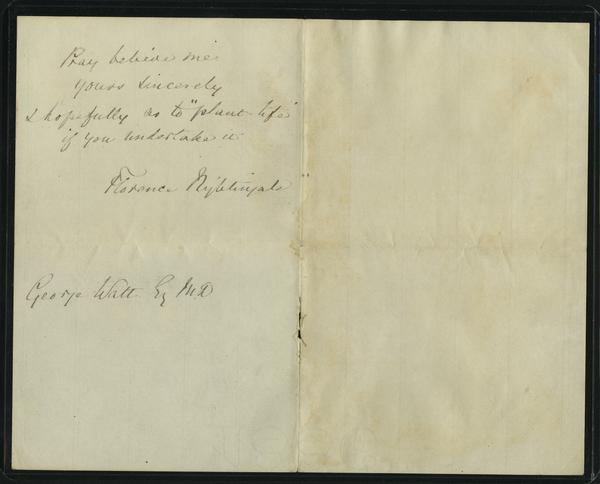 Pray believe me
yours sincerely
& hopefully as to "plant-life"
if you undertake it
Florence Nightingale
George Watt Esq MD